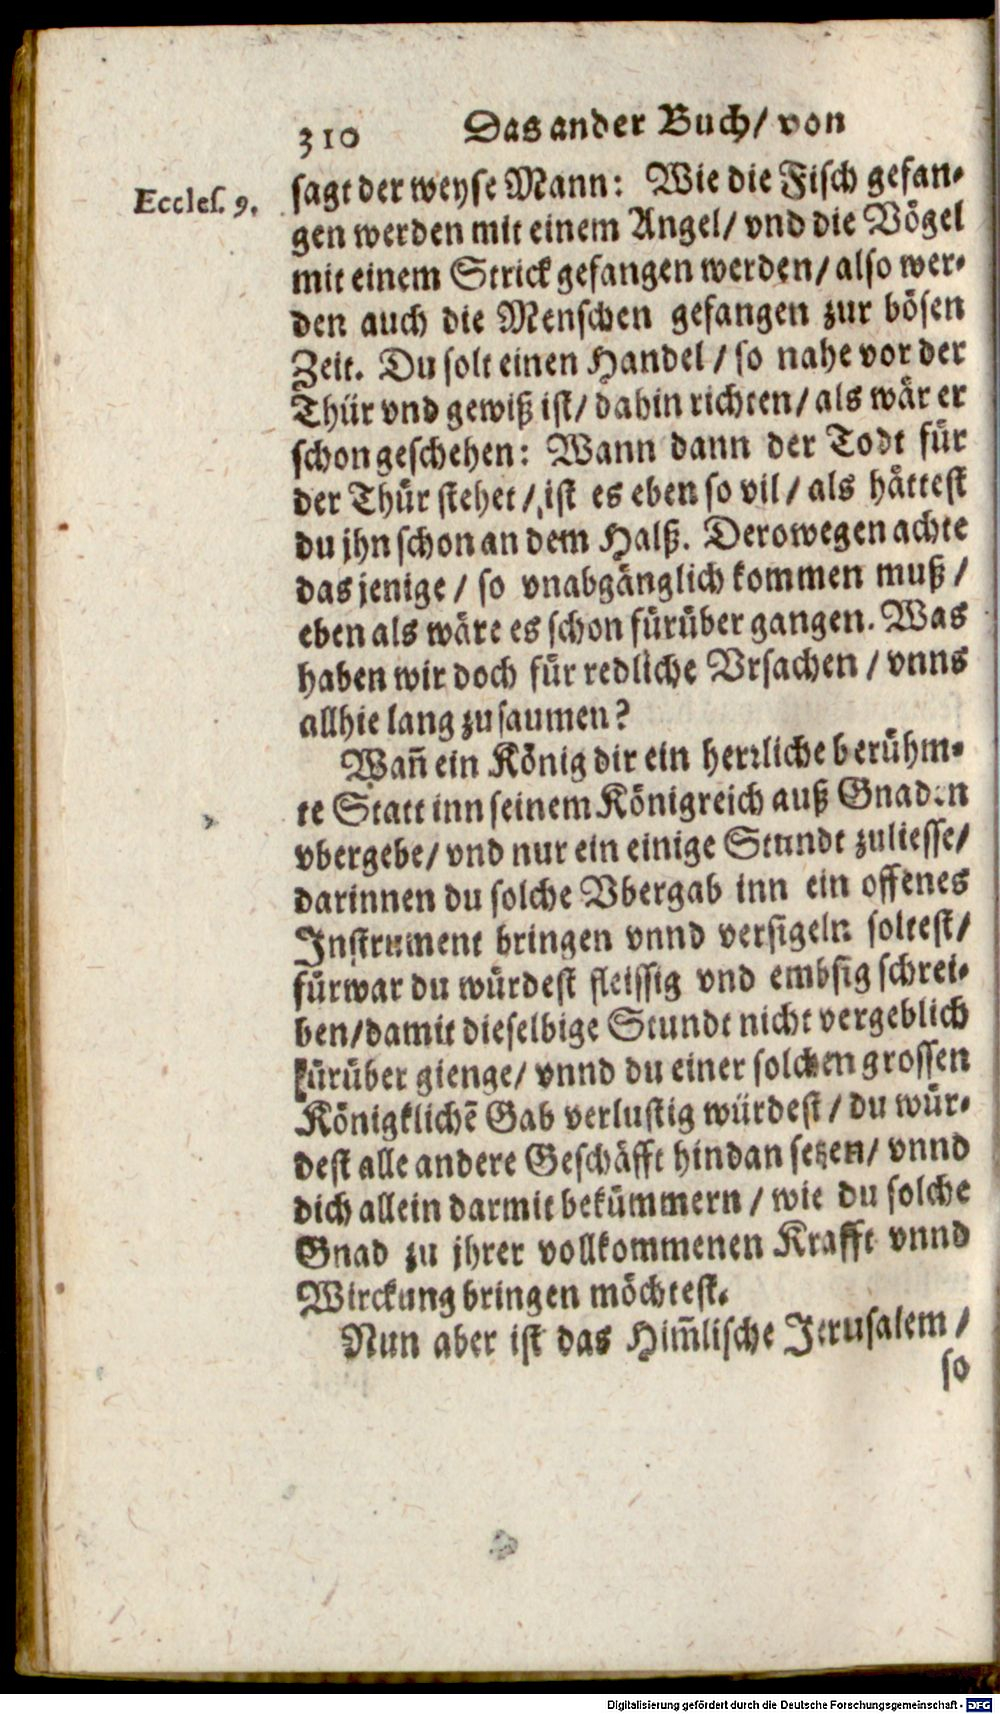 310 Das ander Buch/ von
Eccles. 9.
sagt der weyse Mann: Wie die Fisch gefan-
gen werden mit einem Angel/ vnd die Vögel
mit einem Strick gefangen werden/ also wer-
den auch die Menschen gefangen zur bösen
Zeit. Du solt einen Handel / so nahe vor der
Thür vnd gewiß ist/ dahin richten/ als wär er
schon geschehen: Wann dann der Todt für
der Thür stehet / ist es eben so vil / als hättest
du jhn schon an dem Halß. Derowegen achte
das jenige / so vnabgänglich kommen muß /
eben als wäre es schon fürüber gangen. Was
haben wir doch für redliche Vrsachen / vnns
allhie lang zu saumen?
Wañ ein König dir ein herrliche berühm-
te Statt inn seinem Königreich auß Gnaden
vbergebe/ vnd nur ein einige Stundt zuliesse/
darinnen du solche Vbergab inn ein offenes
Instrument bringen vnnd versigeln soltest/
fürwar du würdest fleissig vnd embsig schrei-
ben/ damit dieselbige Stundt nicht vergeblich
fürüber gienge/ vnnd du einer solchen grossen
Königklichē Gab verlustig würdest / du wür-
dest alle andere Geschäfft hindan setzen/ vnnd
dich allein darmit bekümmern / wie du solche
Gnad zu jhrer vollkommenen Krafft vnnd
Wirckung bringen möchtest.
Nun aber ist das Him̃lische Jerusalem /
so
Digitalisierung gefördert durch die Deutsche Forschungsgemeinschaft - DFG